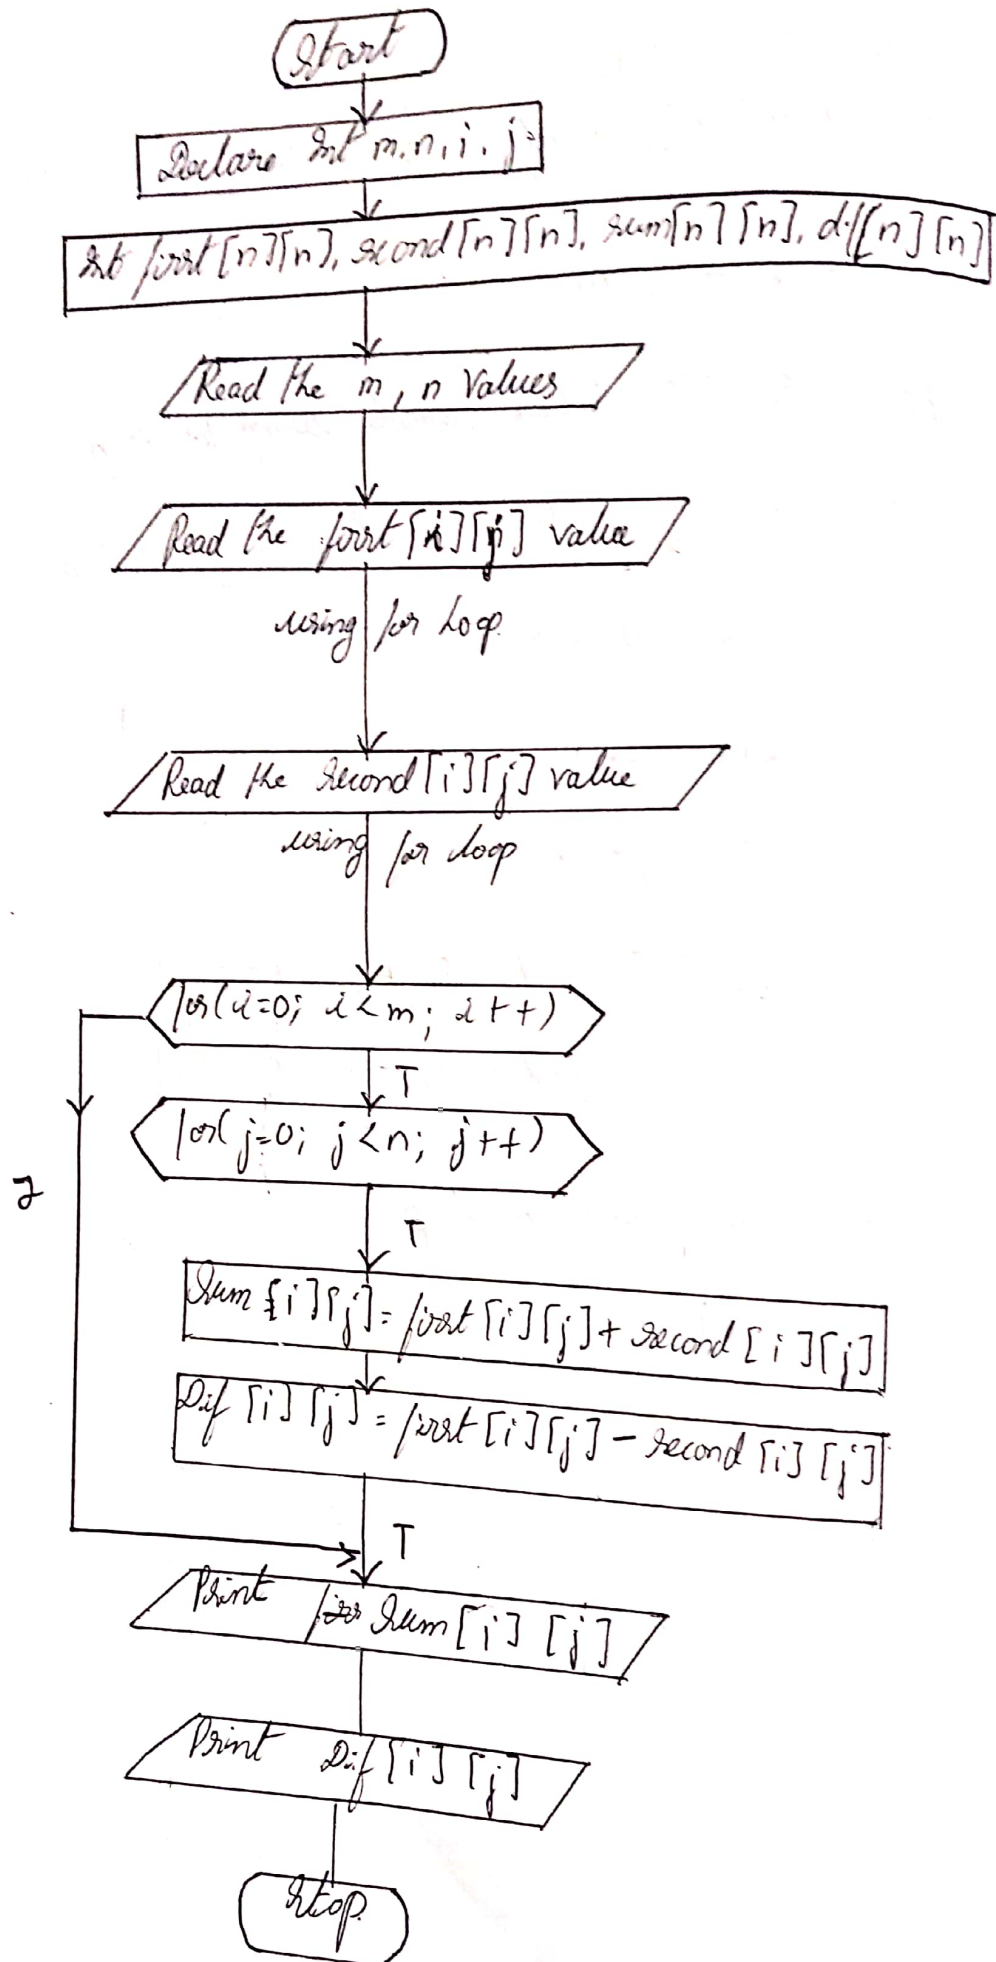 Start
Declare Int m, n, i, j
Int first[n][n], second[n][n], sum[n][n], dif[n][n]
Read the m, n Values
Read the first [i][j] value
using for Loop.
Read the second [i][j] value
using for loop
for(i=0; i<m; i++)
T
for(j=0; j<n; j++)
F
T
Sum [i][j] = first [i][j] + second [i][j]
Dif [i][j] = first [i][j] - second [i][j]
T
Print Sum [i] [j]
Print Dif [i] [j]
Stop.